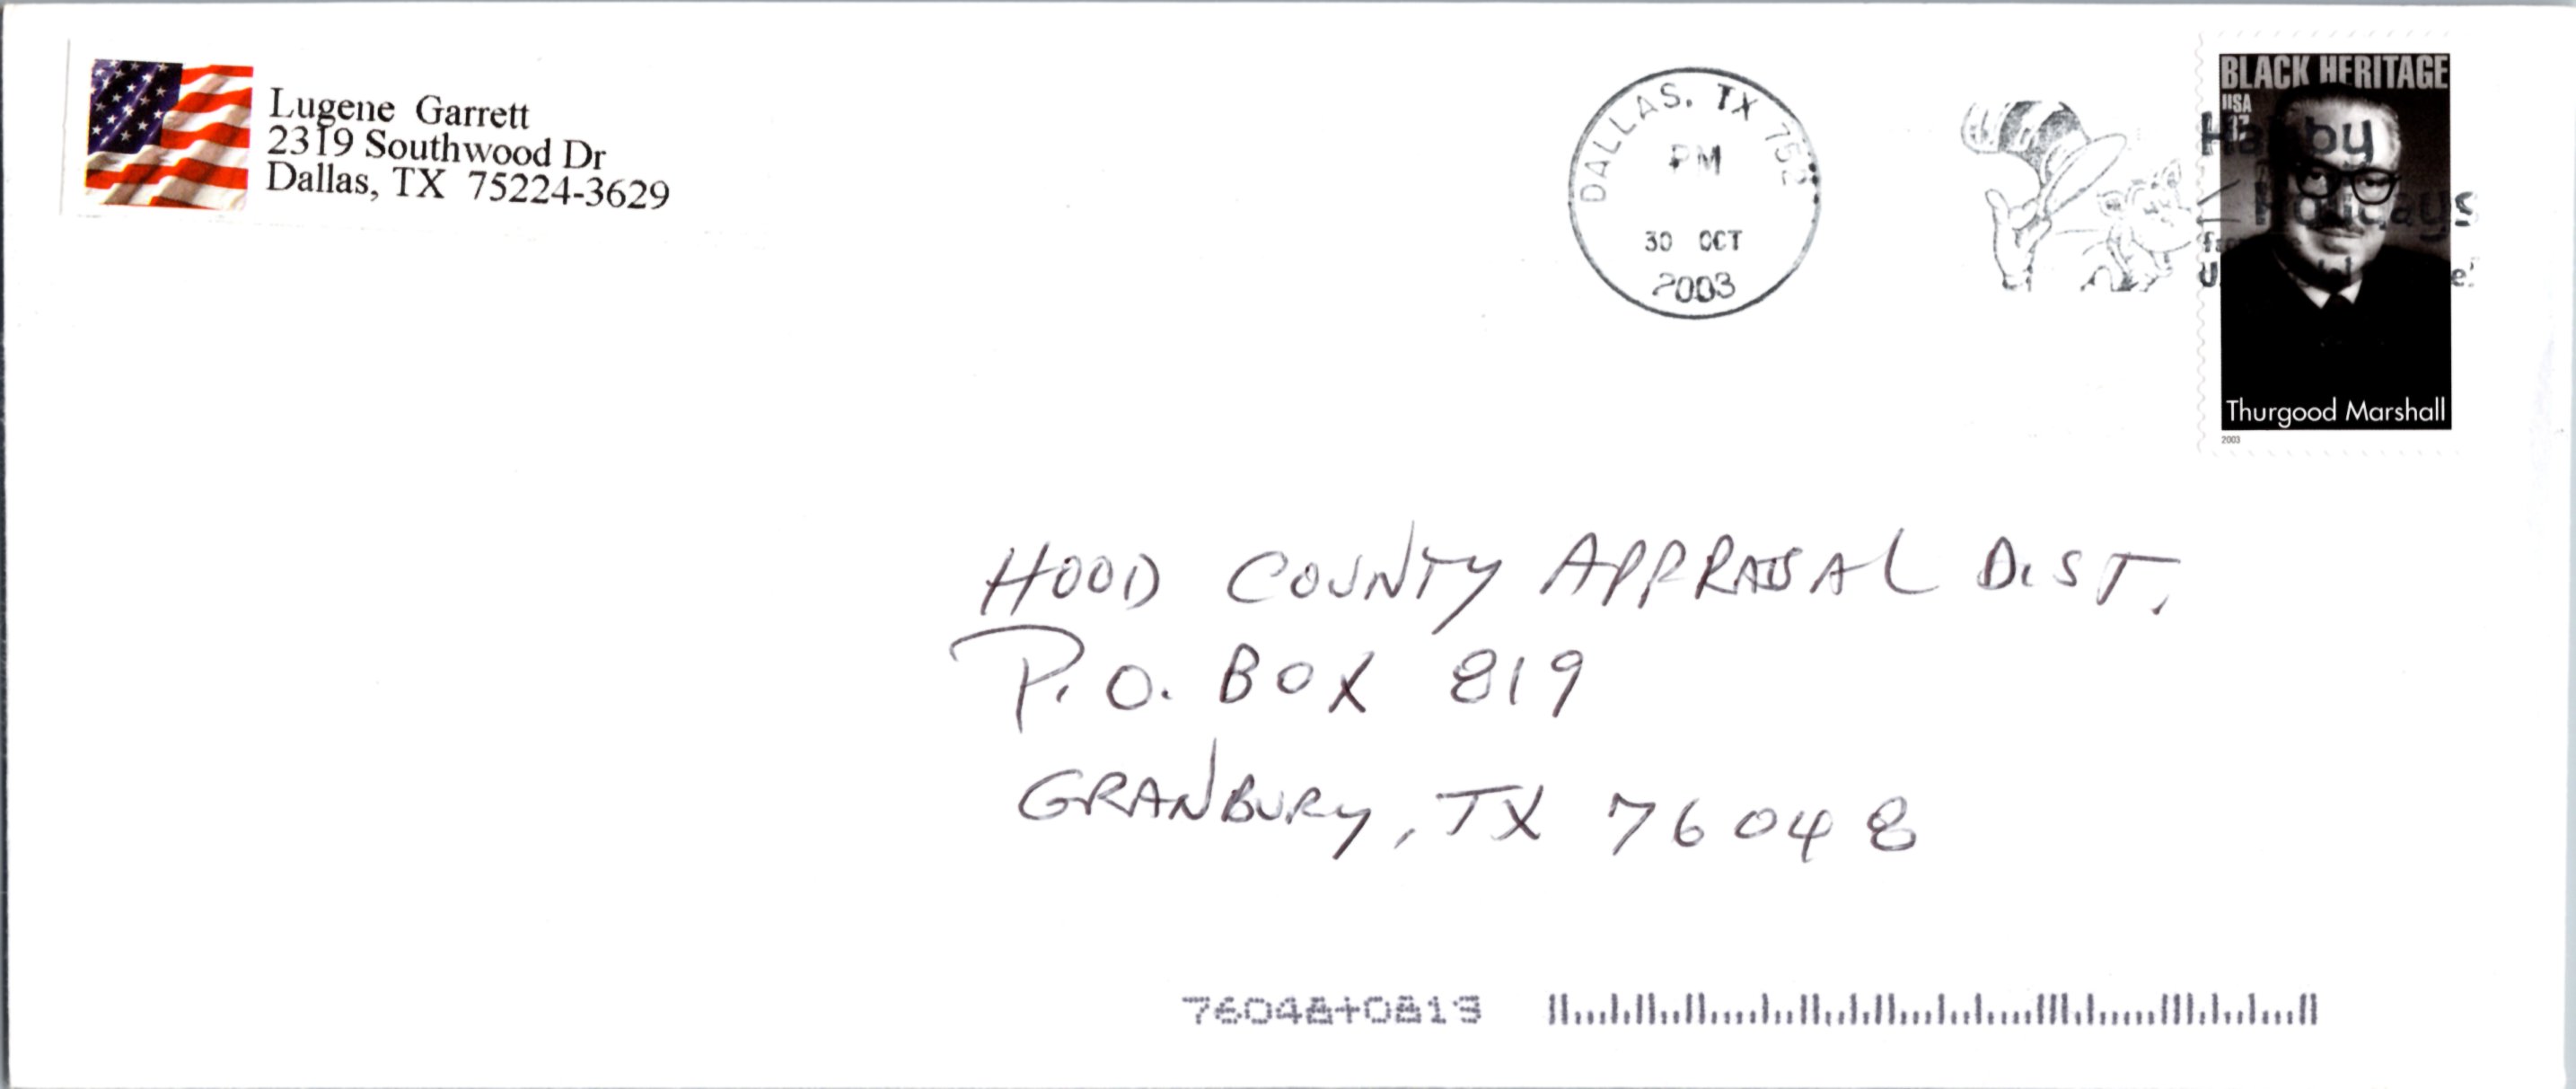 Lugene Garrett
2319 Southwood Dr
Dallas, TX 75224-3629
DALLAS, TX 752
PM
30 OCT
2003
BLACK HERITAGE
USA
37
Happy
Holidays
Thurgood Marshall
2003
HOOD COUNTY APPRAISAL DIST.
P.O. BOX 819
GRANBURY, TX 76048
76048+0819